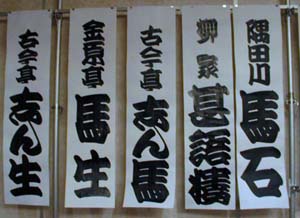 隅田川 馬石
柳家 甚語樓
古今亭 志ん馬
金原亭 馬生
古今亭 志ん生